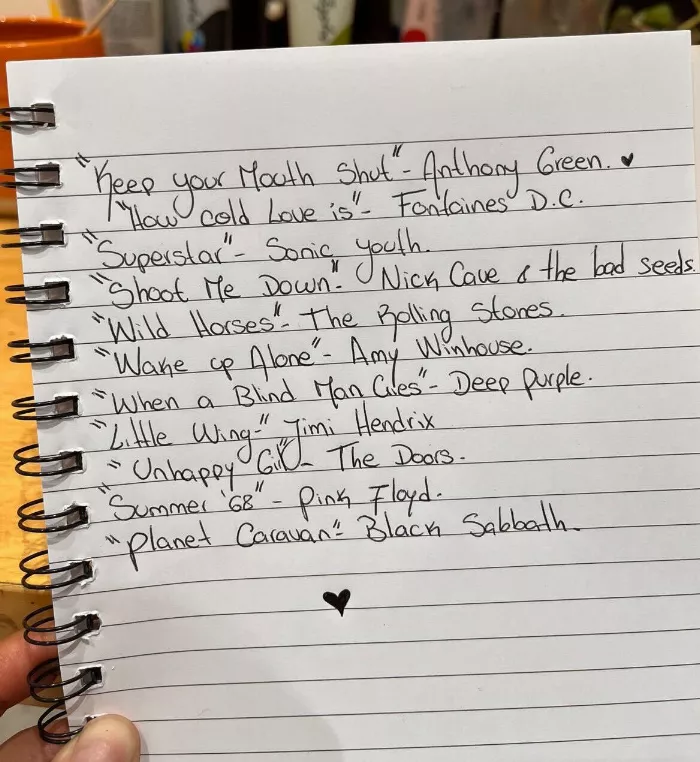 "Keep your Mouth Shut" - Anthony Green. ♥
"How cold Love is" - Fontaines D.C.
"Superstar" - Sonic youth.
"Shoot Me Down" - Nick Cave & the bad seeds.
"Wild Horses" - The Rolling Stones.
"Wake up Alone" - Amy Winhouse.
"When a Blind Man Cries" - Deep purple.
"Little Wing" - Jimi Hendrix
"Unhappy Girl" - The Doors.
"Summer '68" - Pink Floyd.
"Planet Caravan" - Black Sabbath.
♥